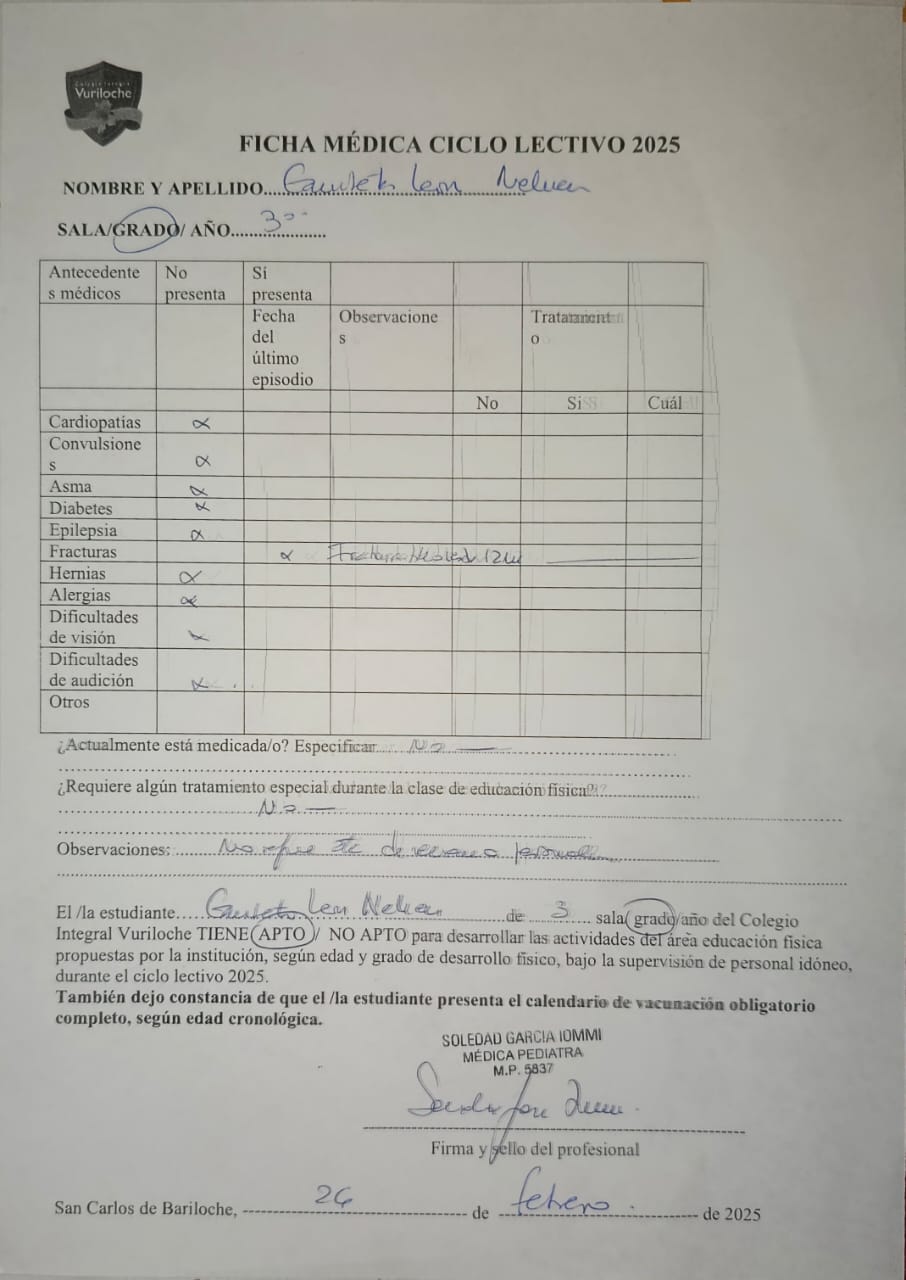 Colegio Integral
Vuriloche
FICHA MÉDICA CICLO LECTIVO 2025
NOMBRE Y APELLIDO.... Leon
SALA/GRADO/ AÑO.......3ro
Antecedente No Sí
s médicos presenta presenta
Fecha Observacione Tratamient
del s o
último
episodio
No Si Cuál
Cardiopatías x
Convulsione
s x
Asma x
Diabetes x
Epilepsia x
Fracturas x Fractura
Hernias x
Alergias x
Dificultades
de visión x
Dificultades
de audición x
Otros
¿Actualmente está medicada/o? Especificar..... No
¿Requiere algún tratamiento especial durante la clase de educación física?
No
Observaciones: No
El /la estudiante..... Leon de 3 sala/grado/año del Colegio
Integral Vuriloche TIENE APTO / NO APTO para desarrollar las actividades del área educación física
propuestas por la institución, según edad y grado de desarrollo físico, bajo la supervisión de personal idóneo,
durante el ciclo lectivo 2025.
También dejo constancia de que el /la estudiante presenta el calendario de vacunación obligatorio
completo, según edad cronológica.
SOLEDAD GARCIA IOMMI
MÉDICA PEDIATRA
M.P. 5837
Firma y sello del profesional
San Carlos de Bariloche, 26 de febrero de 2025